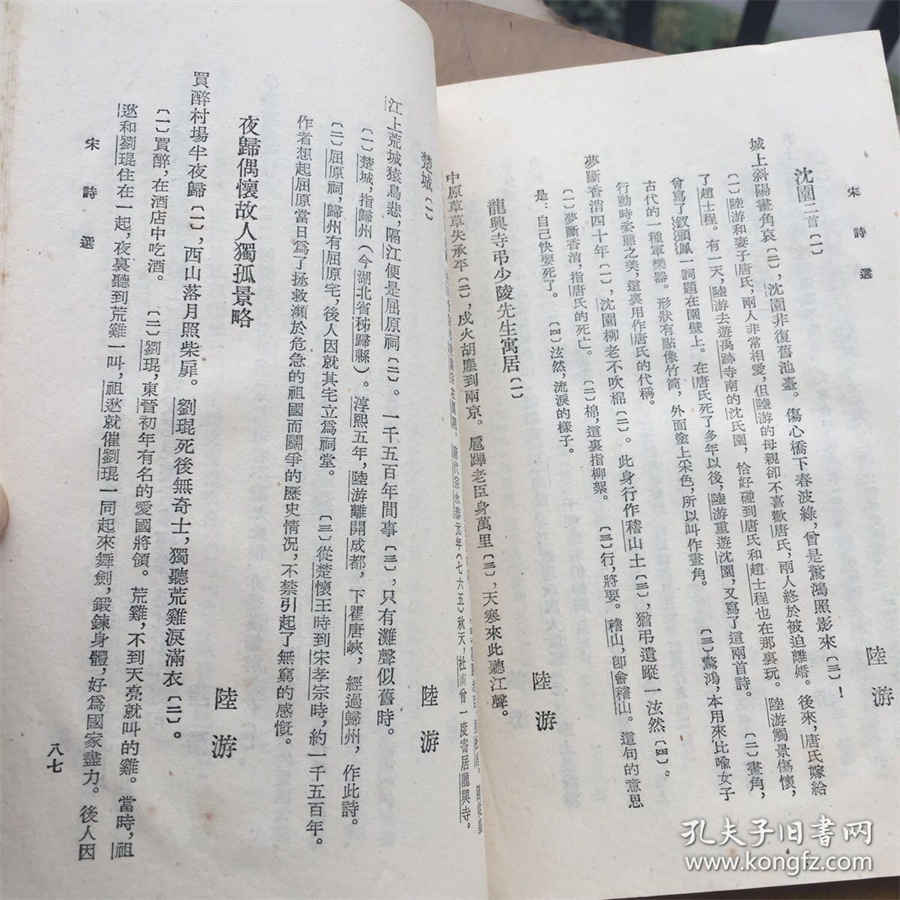 宋詩選
沈園二首〔一〕
陸游
城上斜陽畫角哀〔二〕，沈園非復舊池臺。傷心橋下春波綠，曾是驚鴻照影來〔三〕！
〔一〕陸游和妻子唐氏，兩人非常相愛，但陸游的母親卻不喜歡唐氏，兩人終於被迫離婚。後來，唐氏嫁給
了趙士程。有一天，陸游去遊禹跡寺南的沈氏園，恰好碰到唐氏和趙士程也在那裏玩。陸游觸景傷懷，
曾寫了釵頭鳳一詞題在園壁上。在唐氏死了多年以後，陸游重遊沈園，又寫了這兩首詩。〔二〕畫角，
古代的一種軍樂器。形狀有點像竹筒，外面塗上采色，所以叫作畫角。〔三〕驚鴻，本用來比喻女子
行動時姿態之美，這裏用作唐氏的代稱。
夢斷香消四十年〔一〕，沈園柳老不吹綿〔二〕。此身行作稽山土〔三〕，猶弔遺蹤一泫然〔四〕。
〔一〕夢斷香消，指唐氏的死亡。〔二〕棉，這裏指柳絮。〔三〕行，將要。稽山，卽會稽山。這句的意思
是：自己快要死了。〔四〕泫然，流淚的樣子。
龍興寺弔少陵先生寓居〔一〕
陸游
中原草草失承平〔二〕，戍火胡塵到兩京。扈蹕老臣身萬里〔三〕，天寒來此聽江聲。
元年（七六五）秋天，杜甫曾一度寄居龍興寺。
楚城〔一〕
陸游
江上荒城猿鳥悲，隔江便是屈原祠〔二〕。一千五百年間事〔三〕，只有灘聲似舊時。
〔一〕楚城，指歸州（今湖北省秭歸縣）。淳熙五年，陸游離開成都，下瞿唐峽，經過歸州，作此詩。
〔二〕屈原祠，歸州有屈原宅，後人因就其宅立爲祠堂。〔三〕從楚懷王時到宋孝宗時，約一千五百年。
作者想起屈原當日爲了拯救瀕於危急的祖國而鬭爭的歷史情况，不禁引起了無窮的感慨。
夜歸偶懷故人獨孤景略
陸游
買醉村場半夜歸〔一〕，西山落月照柴扉。劉琨死後無奇士，獨聽荒雞淚滿衣〔二〕。
〔一〕買醉，在酒店中吃酒。〔二〕劉琨，東晉初年有名的愛國將領。荒雞，不到天亮就叫的雞。當時，祖
逖和劉琨住在一起，夜裏聽到荒雞一叫，祖逖就催劉琨一同起來舞劍，鍛鍊身體，好爲國家盡力。後人因
宋詩選
八七
孔夫子旧书网
www.kongfz.com